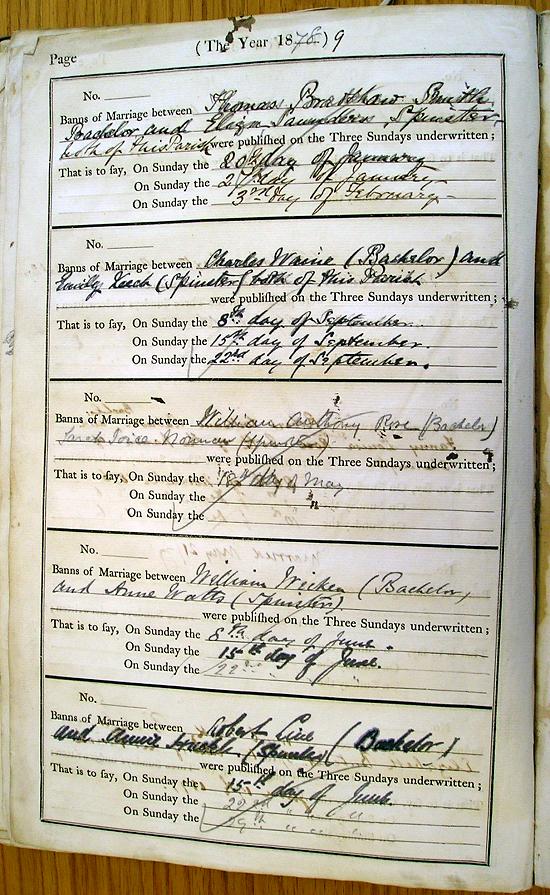 (The Year 1878.) 9
Page
No.
Banns of Marriage between Thomas Bradshaw Smith
Bachelor and Eliza Saunders, Spinster
both of this Parish were published on the Three Sundays underwritten;
That is to say, On Sunday the 20th day of January
On Sunday the 27th day of January
On Sunday the 3rd day of February
No.
Banns of Marriage between Charles Waine (Bachelor) and
Emily Keech (Spinster) both of this Parish
were published on the Three Sundays underwritten;
That is to say, On Sunday the 8th day of September.
On Sunday the 15th day of September.
On Sunday the 22nd day of September.
No.
Banns of Marriage between William Anthony Rose (Bachelor)
Sarah Norman (Spinster)
were published on the Three Sundays underwritten;
That is to say, On Sunday the 18th day of May
On Sunday the "
On Sunday the
No.
Banns of Marriage between William (Bachelor,
and Anne Watts (Spinster)
were published on the Three Sundays underwritten;
That is to say, On Sunday the 8th day of June.
On Sunday the 15th day of June.
On Sunday the 22nd "
No.
Banns of Marriage between Robert Line (Bachelor)
and Annie (Spinster)
were published on the Three Sundays underwritten;
That is to say, On Sunday the 15th day of June.
On Sunday the 22nd " " "
On Sunday the 29th " " "